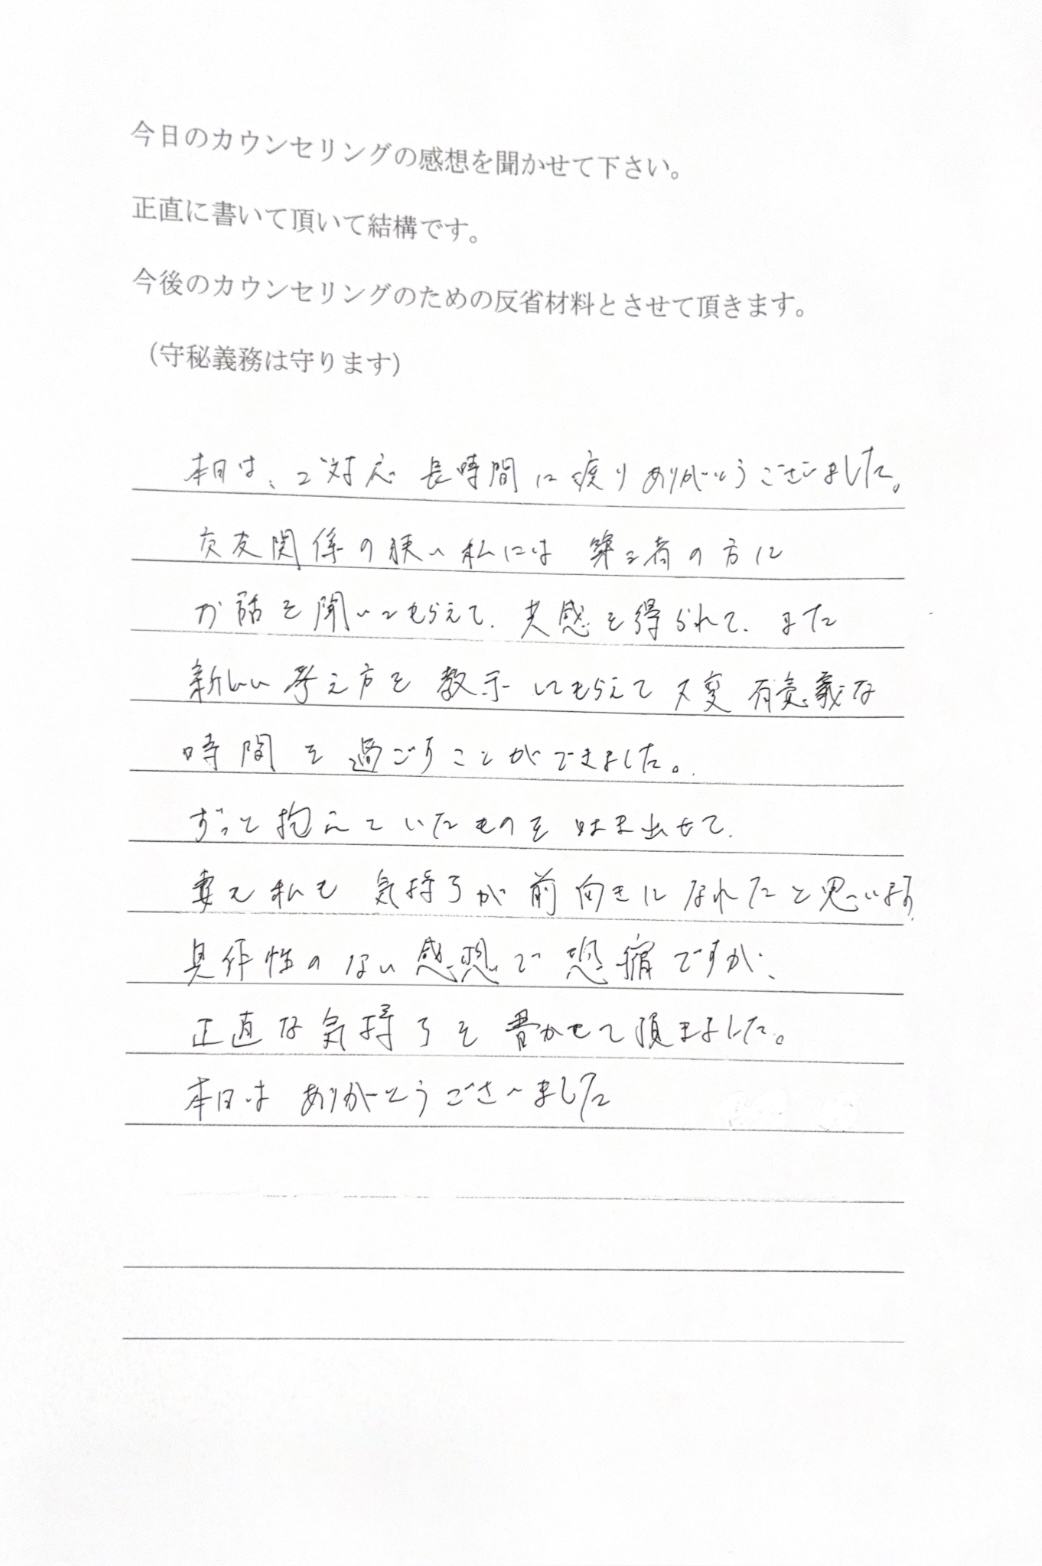 今日のカウンセリングの感想を聞かせて下さい。
正直に書いて頂いて結構です。
今後のカウンセリングのための反省材料とさせて頂きます。
（守秘義務は守ります）
本日は、ご対応 長時間に渡りありがとうございました。
交友関係の狭い私には 第三者の方に
お話を聞いてもらえて、共感を得られて、また
新しい考え方を 教示してもらえて 大変 有意義な
時間を過ごすことができました。
ずっと抱えていたものをはき出せて、
妻も私も 気持ちが前向きになれたと思います
具体性のない感想で恐縮ですが、
正直な気持ちを書かせて頂きました。
本日は ありがとうございました